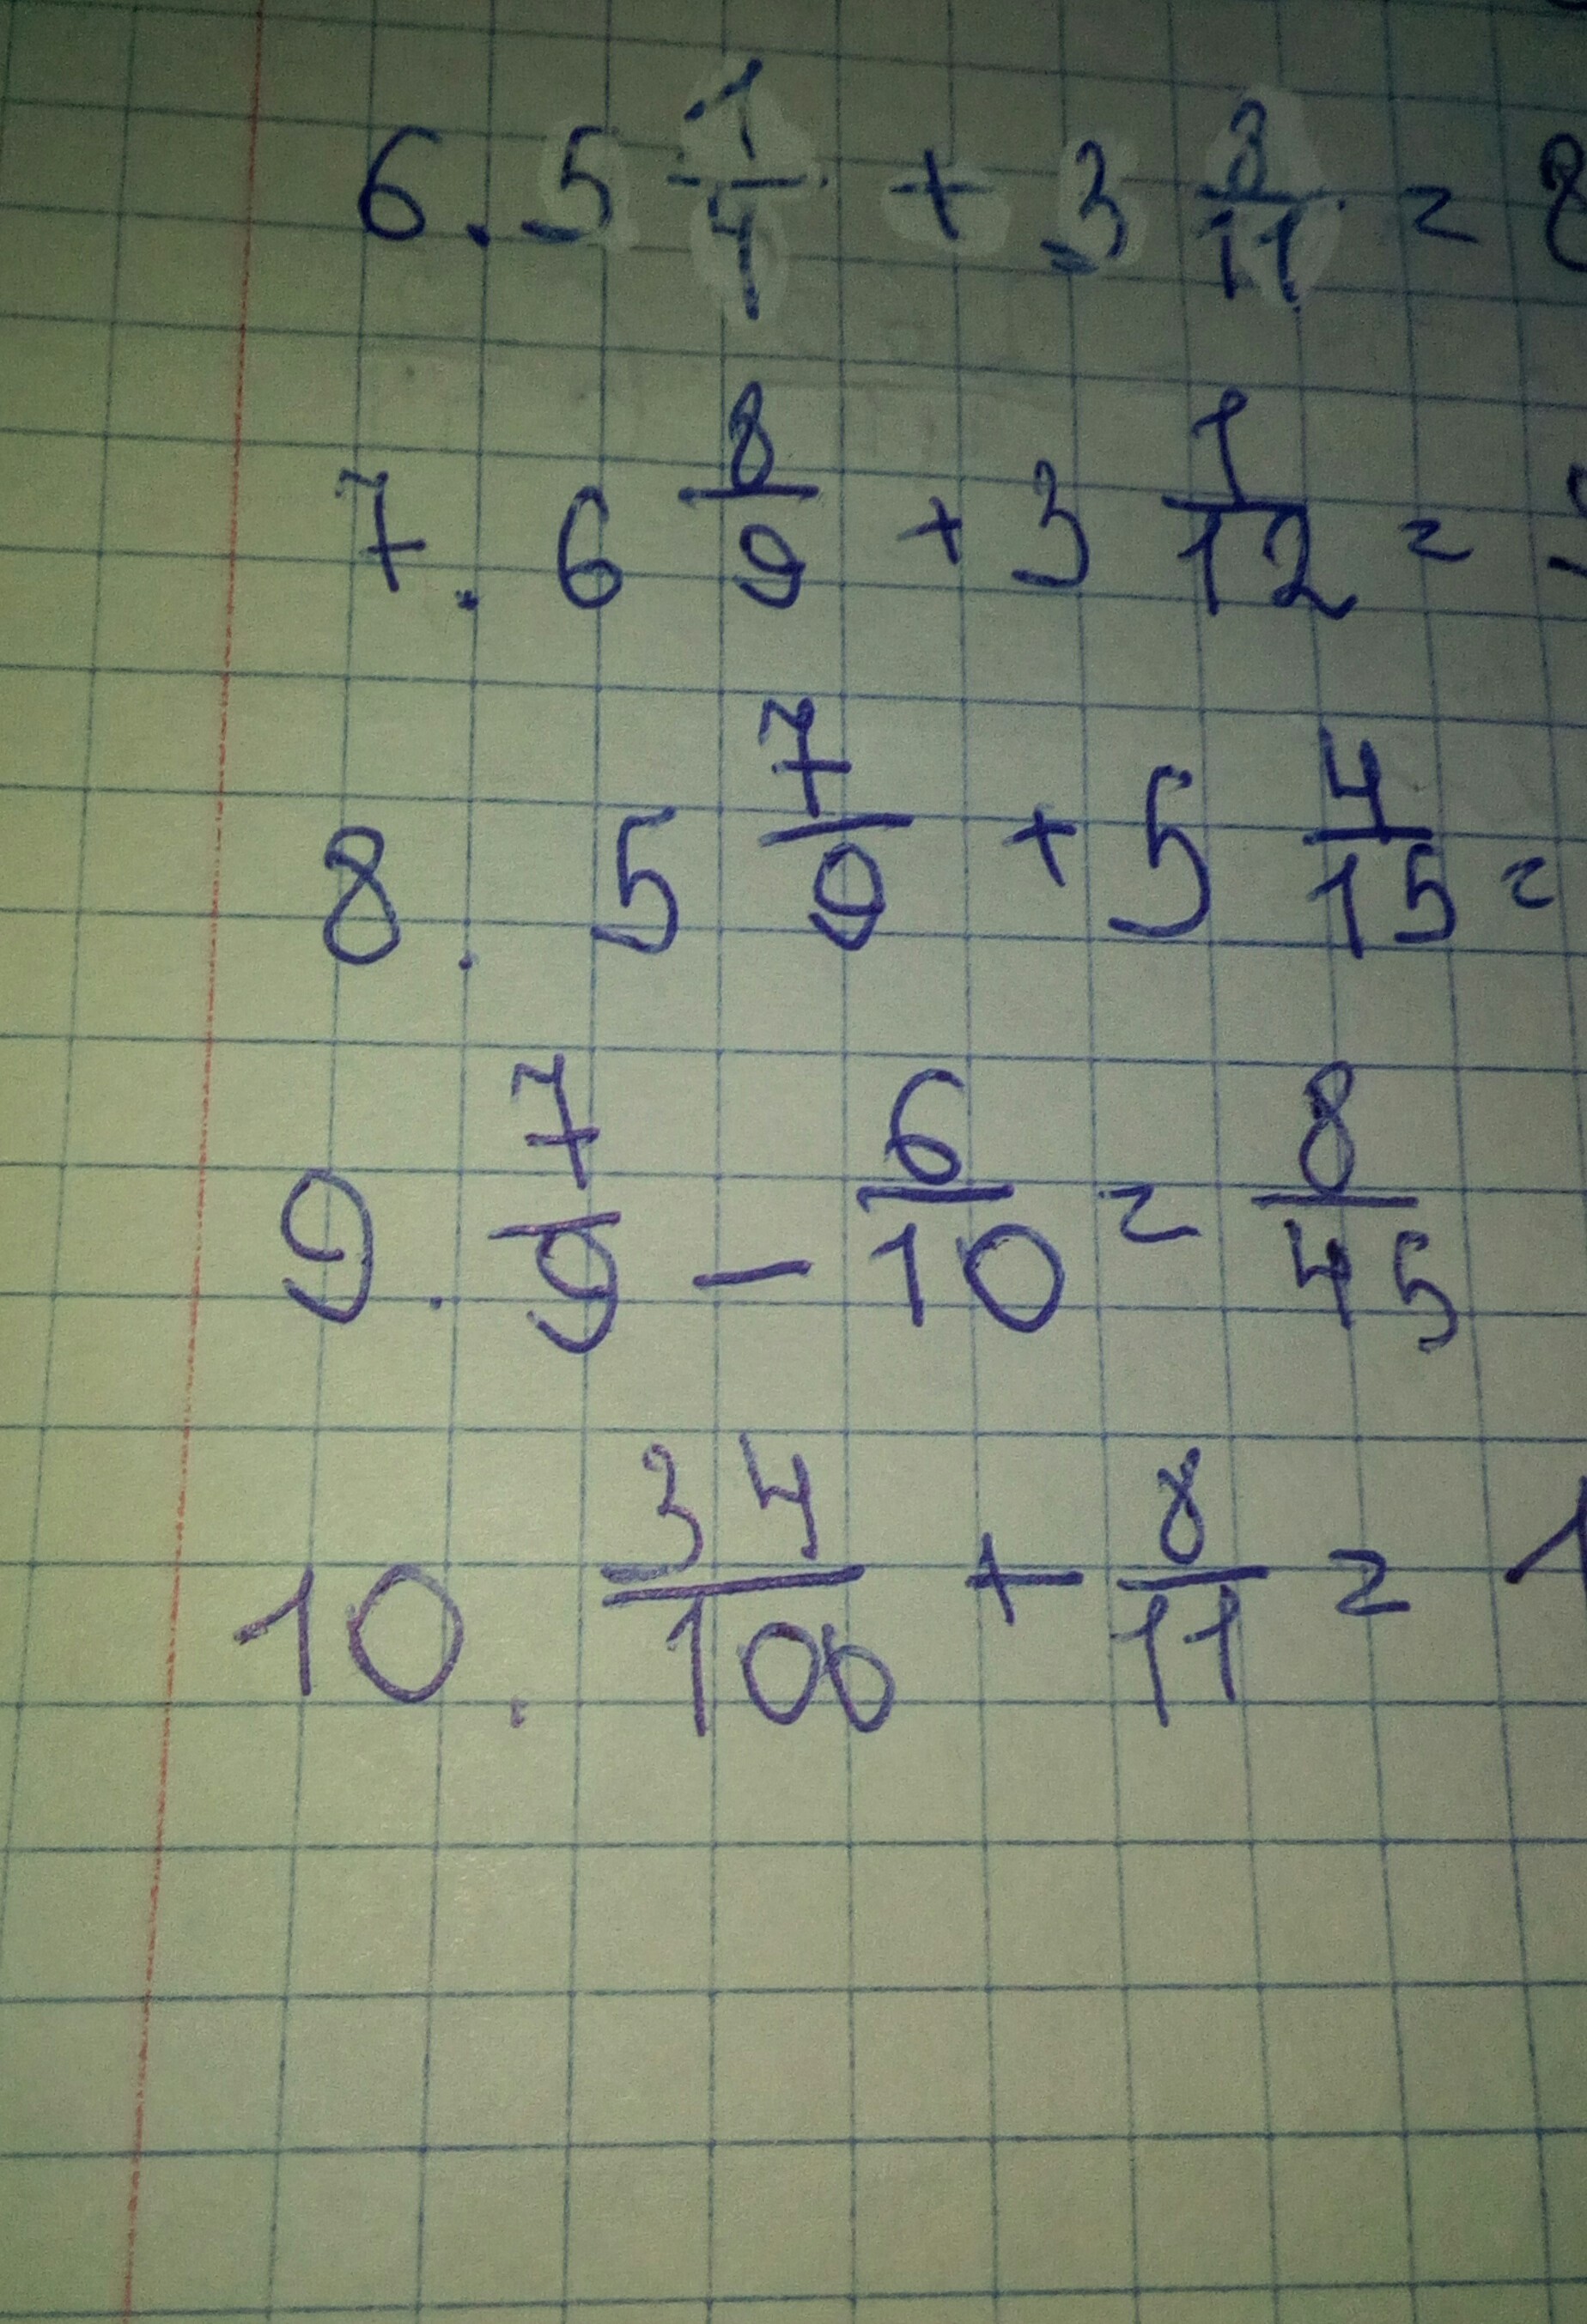 6. 5 1/4 + 3 3/11 = 8
7. 6 8/9 + 3 1/12 =
8. 5 7/9 + 5 4/15 =
9. 7/9 - 6/10 = 8/45
10. 34/100 + 8/11 = 1